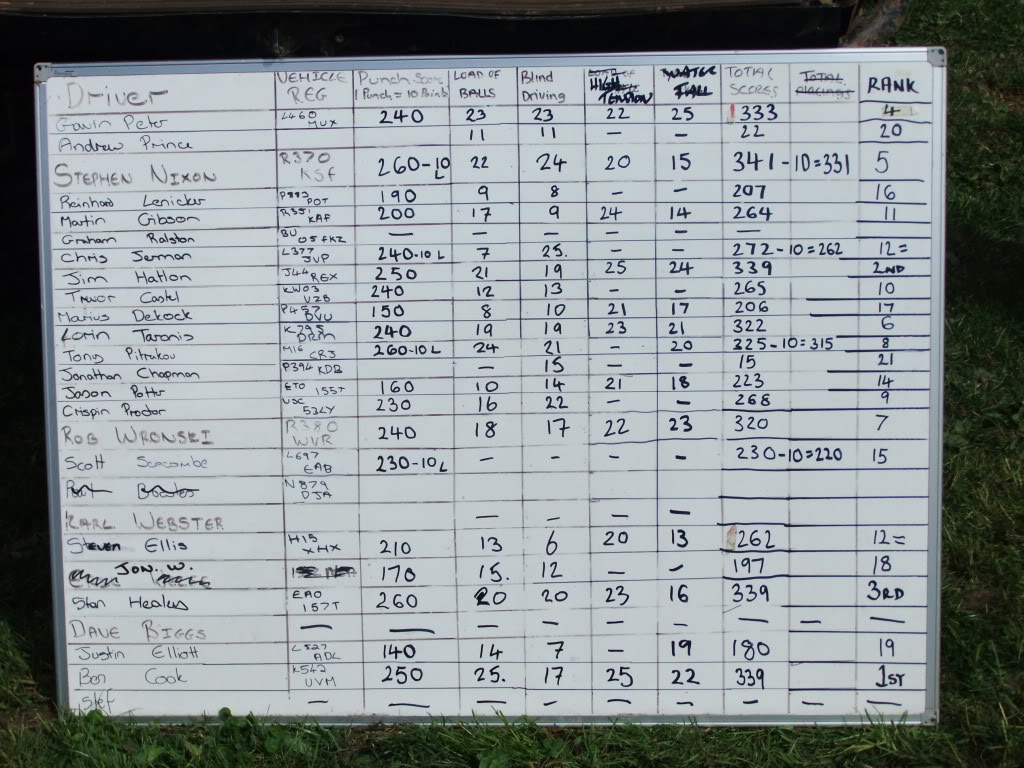 Driver VEHICLE REG Punch Score 1 Punch = 10 Points LOAD OF BALLS Blind Driving HIGH TENSION WATER FALL TOTAL SCORES TOTAL placings RANK
Gavin Peter L460 MUX 240 23 23 22 25 333 4
Andrew Prince 11 11 - - 22 20
STEPHEN NIXON R370 KSF 260-10 L 22 24 20 15 341-10=331 5
Reinhard Lenicker P883 POT 190 9 8 - - 207 16
Martin Gibson R351 KAF 200 17 9 24 14 264 11
Graham Ralston BU 05 FKZ - - - - - -
Chris Jermon L377 JVP 240-10 L 7 25. - - 272-10=262 12=
Jim Hatton J44 REX 250 21 19 25 24 339 2ND
Trevor Castel KW03 VZB 240 12 13 - - 265 10
Marius Dekock P457 DVU 150 8 10 21 17 206 17
Lorin Taranis K795 DRM 240 19 19 23 21 322 6
Tony Pitrukov M16 CRJ 260-10 L 24 21 - 20 325-10=315 8
Jonathan Chapman P394 KDB - 15 - - 15 21
Jason Potter ETO 155T 160 10 14 21 18 223 14
Crispin Proctor 534Y 230 16 22 - - 268 9
ROB WRONSKI R380 WVR 240 18 17 22 23 320 7
Scott L697 EAB 230-10 L - - - - 230-10=220 15
N879 DJA
KARL WEBSTER - - -
Steven Ellis H15 XHX 210 13 6 20 13 262 12=
JON. W. 170 15. 12 - - 197 18
Stan Heales EAO 157T 260 20 20 23 16 339 3RD
DAVE BIGGS - - - - - - - - -
Justin Elliott L527 ADL 140 14 7 - 19 180 19
Ben Cook K542 UVM 250 25. 17 25 22 339 1ST
Stef - - - - - - - - -